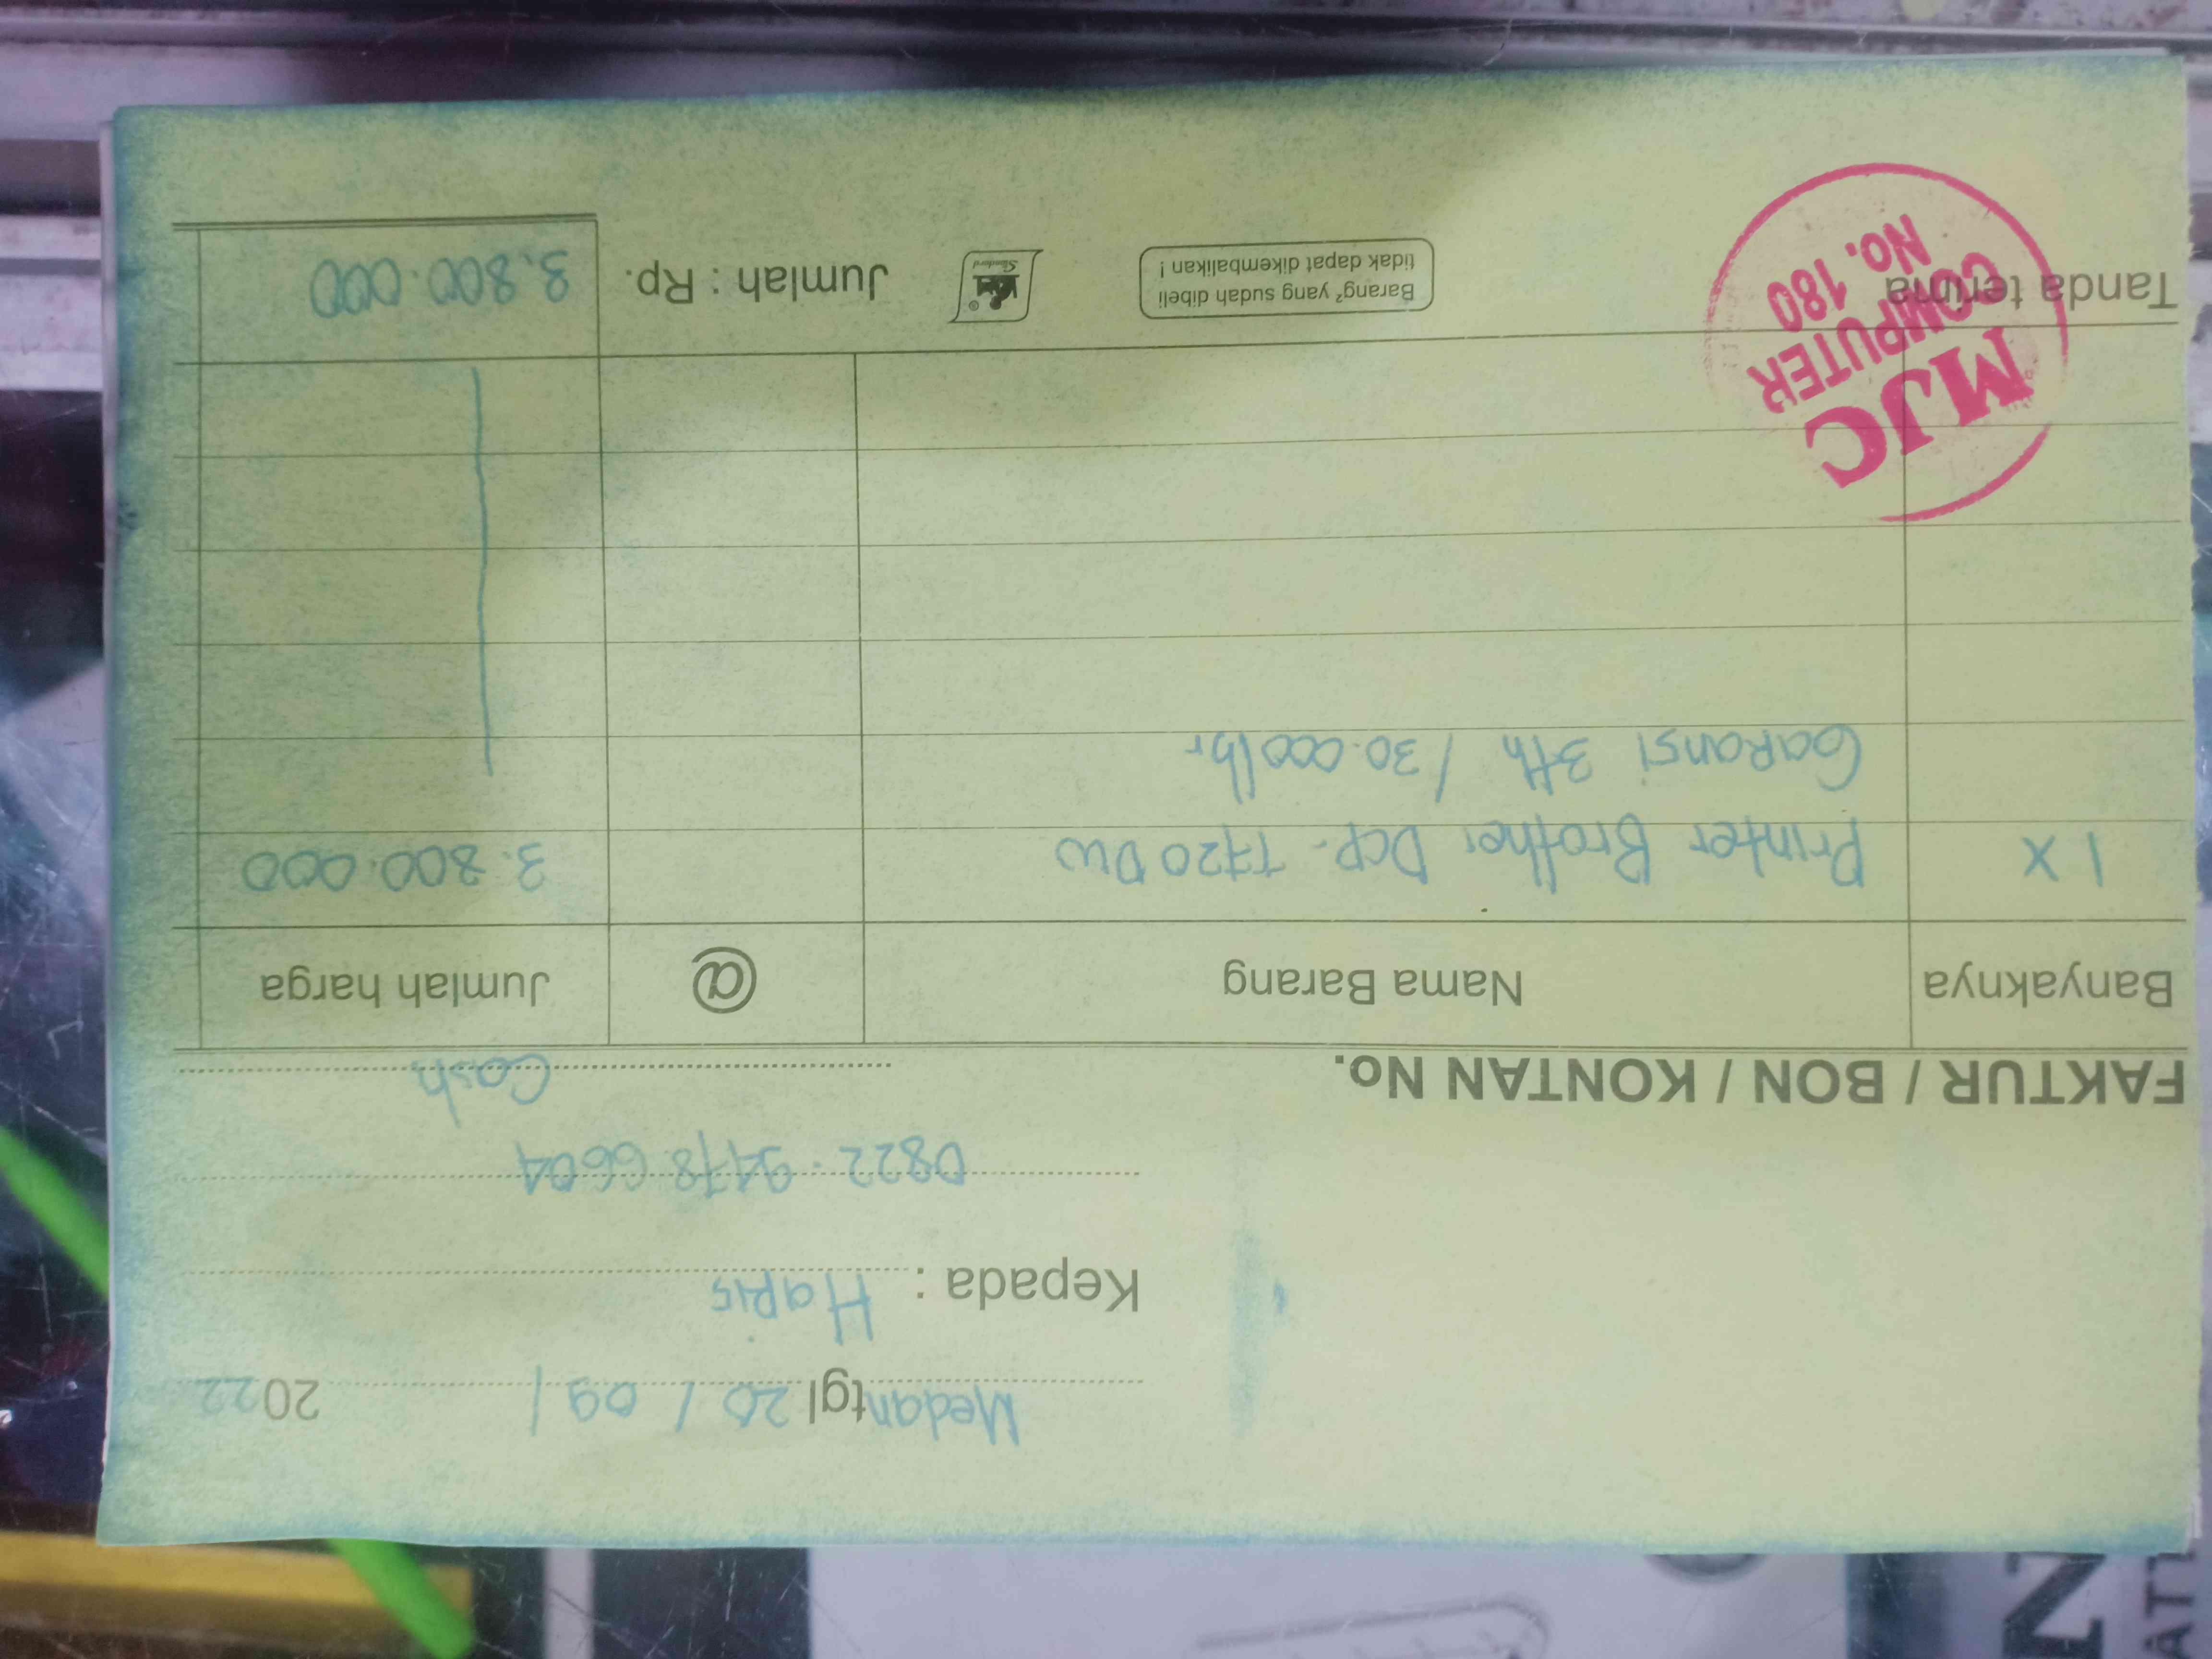 Medan tgl 20 / 09 / 2022
Kepada : Hapis
0822 - 9478 6604
FAKTUR / BON / KONTAN No. Cash
Banyaknya Nama Barang @ Jumlah harga
1 X Printer Brother Dcp. T720 DW 3.800.000
Garansi 3th / 30.000 lbr
Tanda terima Barang² yang sudah dibeli Jumlah : Rp. 3.800.000
tidak dapat dikembalikan !
MJC
COMPUTER
No. 180